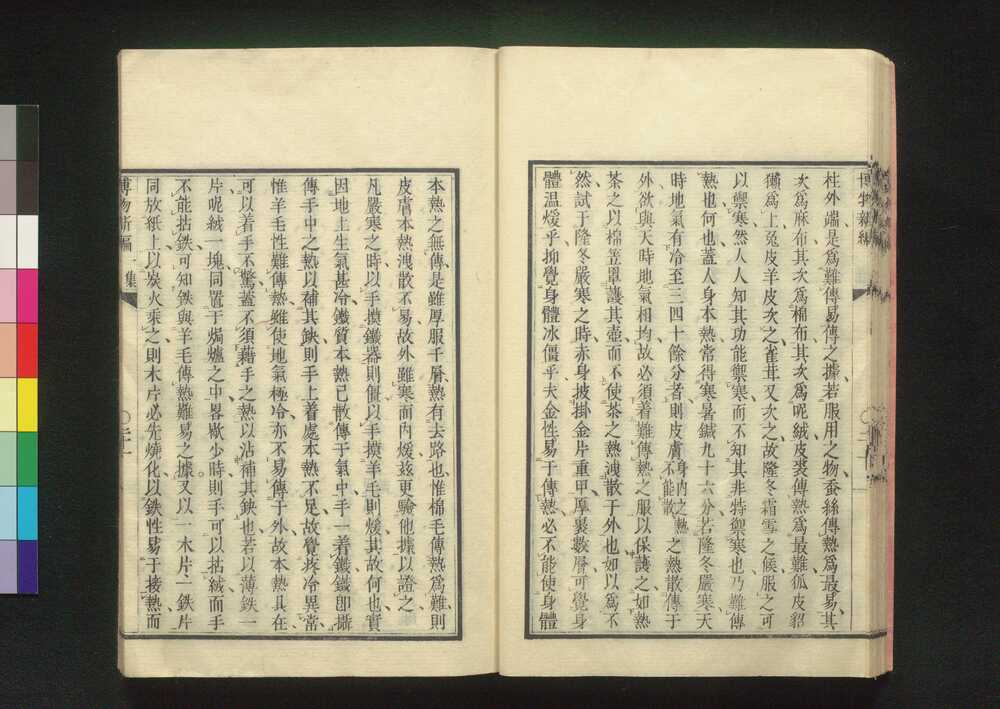 博物新編
柱外端是爲難傳易傳之據若服用之物蚕絲傳熱爲最易其
次爲麻布其次爲棉布其次爲呢絨皮裘傳熱爲最難狐皮貂
獺爲上兔皮羊皮次之雀茸又次之故隆冬霜雪之候服之可
以禦寒然人人知其功能禦寒而不知其非特禦寒也乃難傳
熱也何也蓋人身本熱常得寒暑鍼九十六分若隆冬嚴寒天
時地氣有冷至三四十餘分者則皮膚不能散身內之熱之熱散傳于
外欲與天時地氣相均故必須着難傳熱之服以保護之如熱
茶之以棉蓋罩護其壺而不使茶之熱洩散于外也如以爲不
然試于隆冬嚴寒之時赤身披掛金片重甲厚裹數層可覺身
體温煖乎抑覺身體冰僵乎夫金性易于傳熱必不能使身體
本熱之無傳是雖厚服千層熱有去路也惟棉毛傳熱爲難則
皮膚本熱洩散不易故外雖寒而內煖茲更驗他據以證之
凡嚴寒之時以手摸鐵器則僵以手摸羊毛則煖其故何也實
因地上生氣甚冷鐵質本熱已散傳于氣中手一着鐵鐵卽攝
傳手中之熱以補其缺則手上着處本熱不足故覺疼冷異常
惟羊毛性難傳熱雖使地氣極冷亦不易傳于外故本熱具在
可以着手不驚蓋不須藉手之熱以沾補其缺也若以薄鉄一
片呢絨一塊同置于焗爐之中畧歇少時則手可以拈絨而手
不能拈鉄可知鉄與羊毛傳熱難易之據又以一木片一鉄片
同放紙上以炭火乘之則木片必先燒化以鉄性易于接熱而
博物新編 一集